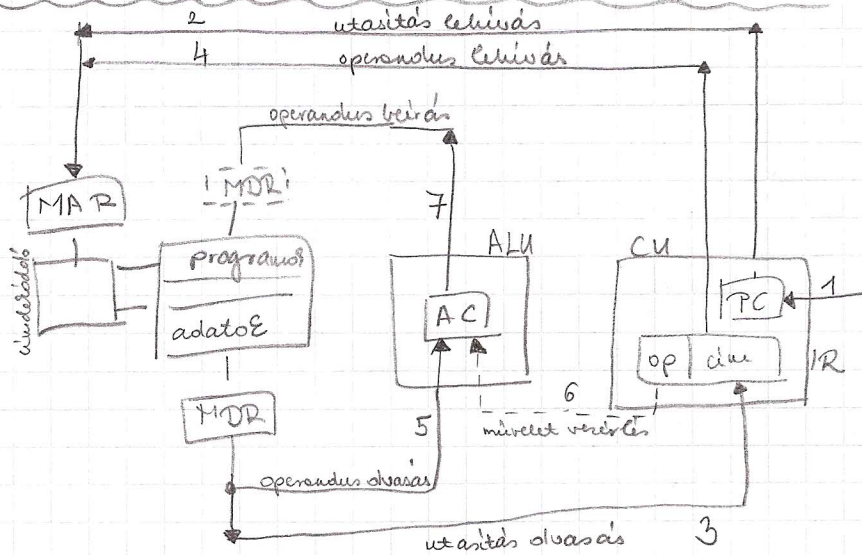 2 utasítás lehívás
4 operandus lehívás
operandus beírás
MDR
MAR
7
ALU
CU
programok
PC
1
AC
adatok
op cím
IR
MDR
6
5
művelet vezérlés
operandus olvasás
utasítás olvasás
3